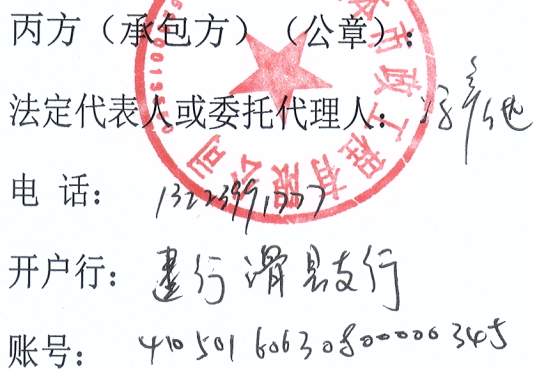 丙方（承包方）（公章）：
法定代表人或委托代理人：
电 话：13223991777
开户行：建行滑县支行
账号：41050160630800000345
市政工程有限公司